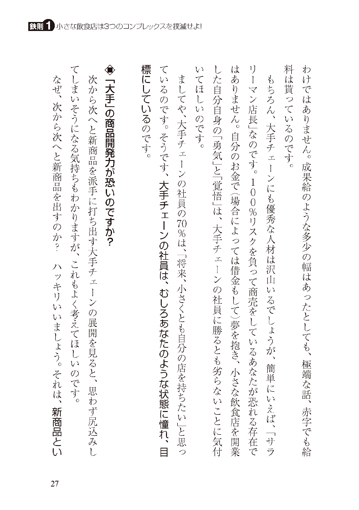 鉄則1 小さな飲食店は3つのコンプレックスを撲滅せよ!
わけではありません。成果給のような多少の幅はあったとしても、極端な話、赤字でも給
料は貰っているのです。
もちろん、大手チェーンにも優秀な人材は沢山いるでしょうが、簡単にいえば、「サラ
リーマン店長」なのです。100%リスクを負って商売をしているあなたが恐れる存在で
はありません。自分のお金で(場合によっては借金もして)夢を抱き、小さな飲食店を開業
した自分自身の「勇気」と「覚悟」は、大手チェーンの社員に勝るとも劣らないことに気付
いてほしいのです。
ましてや、大手チェーンの社員の70%は、「将来、小さくとも自分の店を持ちたい」と思っ
ているのです。そうです、大手チェーンの社員は、むしろあなたのような状態に憧れ、目
標にしているのです。
「大手」の商品開発力が恐いのですか?
次から次へと新商品を派手に打ち出す大手チェーンの展開を見ると、思わず尻込みし
てしまいそうになる気持ちもわかりますが、これもよく考えてほしいのです。
なぜ、次から次へと新商品を出すのか? ハッキリいいましょう。それは、新商品とい
27